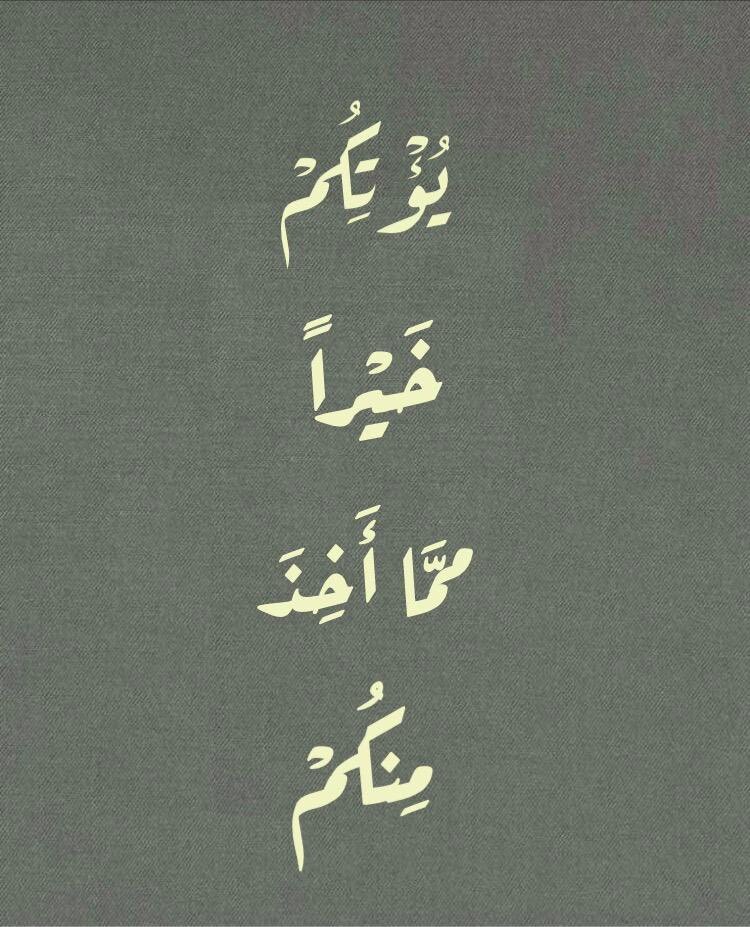 يُؤْتِكُمْ
خَيْراً
ممَّا أَخِذَ
مِنكُمْ